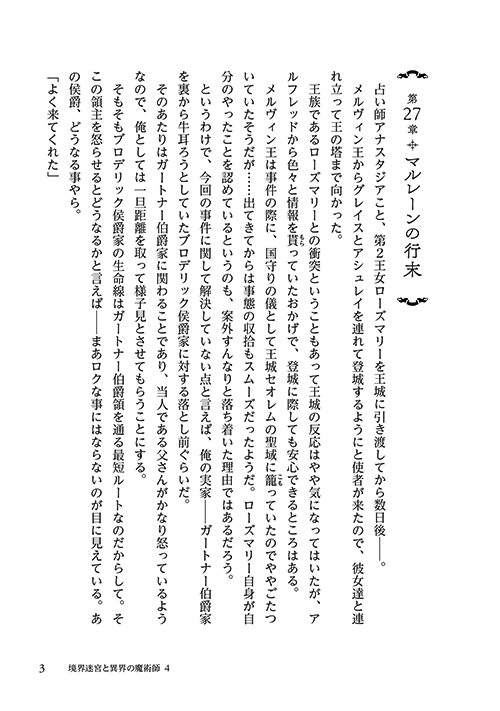 第27章 マルレーンの行末
占い師アナスタジアこと、第2王女ローズマリーを王城に引き渡してから数日後――。
メルヴィン王からグレイスとアシュレイを連れて登城するようにと使者が来たので、彼女達と連
れ立って王の塔まで向かった。
王族であるローズマリーとの衝突ということもあって王城の反応はやや気になってはいたが、ア
ルフレッドから色々と情報を貰っていたおかげで、登城に際しても安心できるところはある。
もら
メルヴィン王は事件の際に、国守りの儀として王城セオレムの聖域に籠っていたのでややごたつ
こも
いていたそうだが……出てきてからは事態の収拾もスムーズだったようだ。ローズマリー自身が自
分のやったことを認めているというのも、案外すんなりと落ち着いた理由ではあるだろう。
というわけで、今回の事件に関して解決していない点と言えば、俺の実家――ガートナー伯爵家
を裏から牛耳ろうとしていたブロデリック侯爵家に対する落とし前ぐらいだ。
そのあたりはガートナー伯爵家に関わることであり、当人である父さんがかなり怒っているよう
なので、俺としては一旦距離を取って様子見とさせてもらうことにする。
そもそもブロデリック侯爵家の生命線はガートナー伯爵領を通る最短ルートなのだからして。そ
この領主を怒らせるとどうなるかと言えば――まあロクな事にはならないのが目に見えている。あ
の侯爵、どうなる事やら。
「よく来てくれた」
3 境界迷宮と異界の魔術師 4